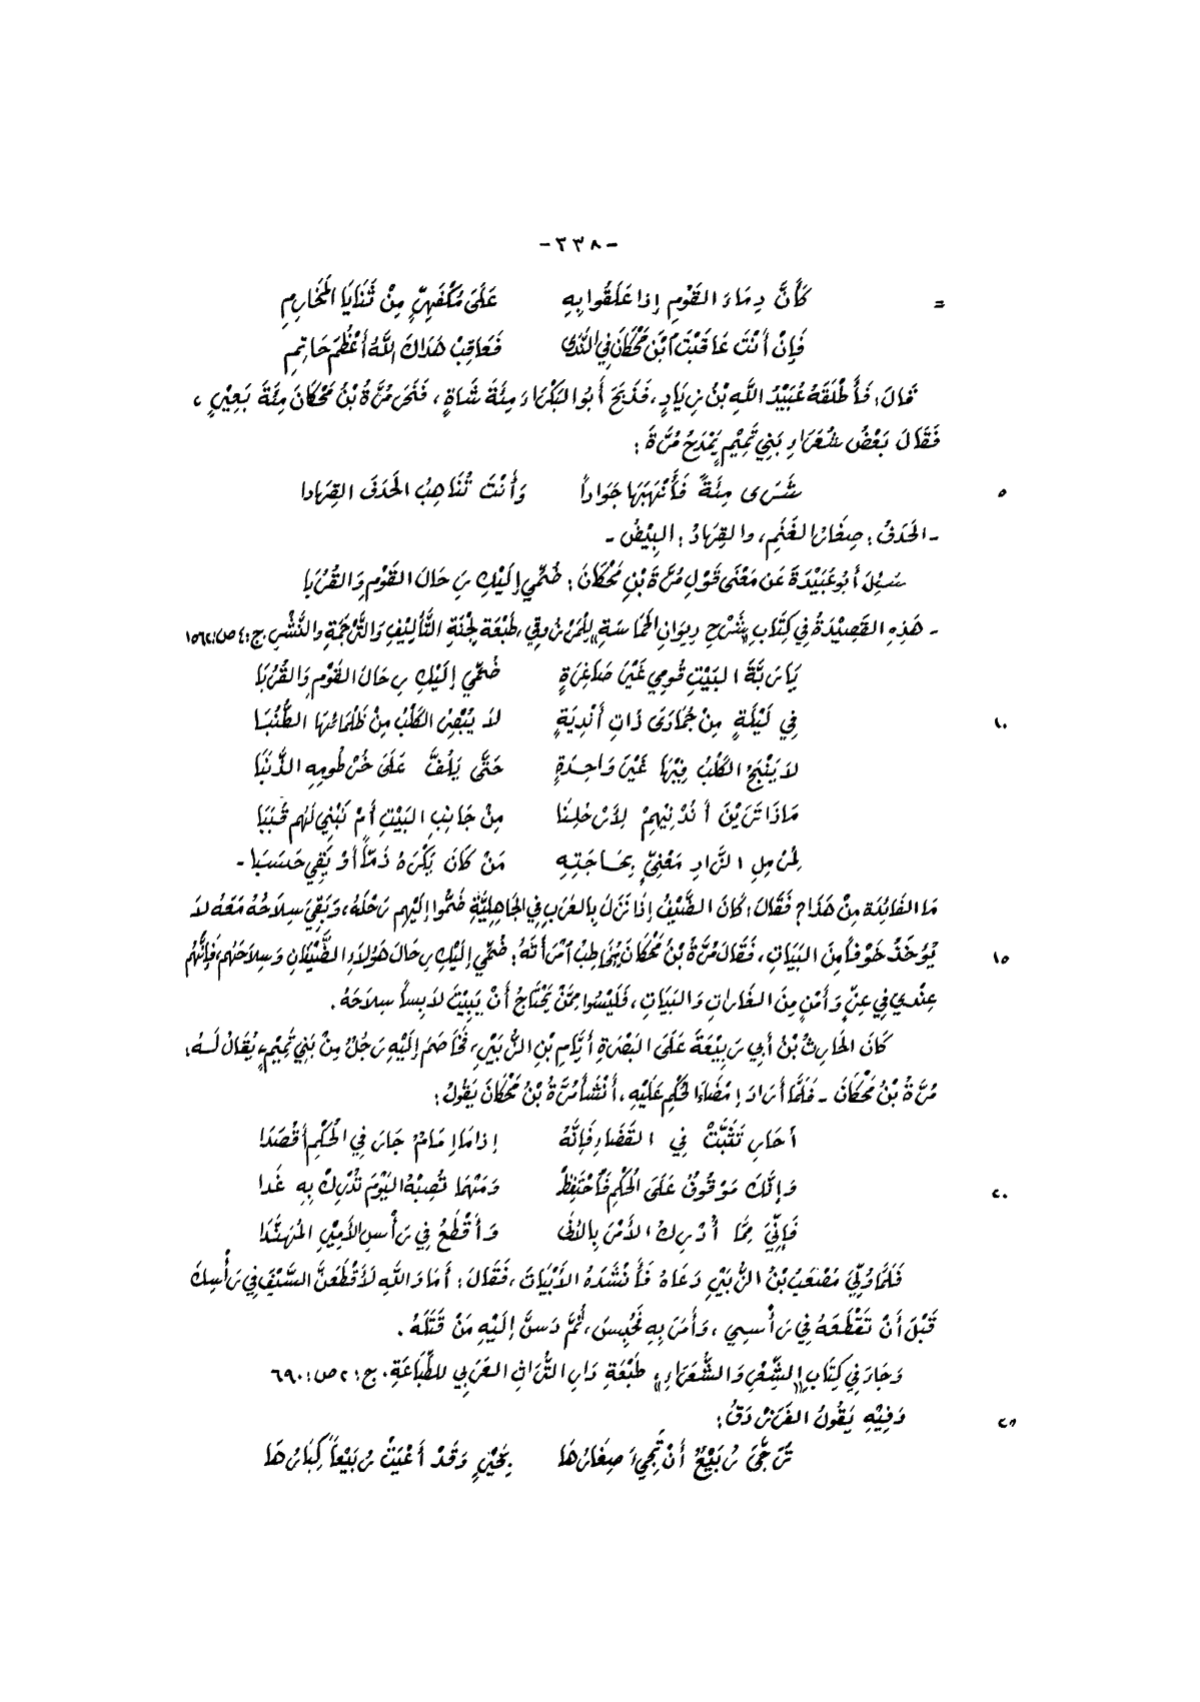 -٢٣٨-
= كَأَنَّ دِمَاءَ القَوْمِ إِذا عَلَقُوا بِهِ عَلَى مُكْفَهِرٍّ مِنْ ثَنَايَا المَخَارِمِ
فَإِنْ أَنْتَ عَاقَبْتَ ابْنَ مَحْكَانَ فِي النَّدَى فَعَاقِبْ هَدَاكَ اللَّهُ أَعْظُمَ حَاتِمِ
قَالَ: فَأَطْلَقَهُ عُبَيْدُ اللَّهِ بْنُ زِيَادٍ، فَذَبَحَ أَبُو البَكْرَاءِ مِئَةَ شَاةٍ، فَنَحَرَ مُرَّةُ بْنُ مَحْكَانَ مِئَةَ بَعِيْرٍ،
فَقَالَ بَعْضُ شُعَرَاءِ بَنِي تَمِيْمٍ يَمْدَحُ مُرَّةَ:
٥ شَرَى مِئَةً فَأَنْهَبَهَا جَوَاداً وَأَنْتَ تُنَاهِبُ الحَدَفَ القِهَادا
- الحَدَفُ: صِغَارُ الغَنَمِ، والقِهَادُ: البِيْضُ -
سُئِلَ أَبُو عُبَيْدَةَ عَن مَعْنَى قَوْلِ مُرَّةَ بْنِ مَحْكَانَ: ضُمِّي إِلَيْكِ رِحَالَ القَوْمِ وَالقُرُبَا
- هَذِهِ القَصِيْدَةُ فِي كِتَابِ «شَرْحِ دِيوَانِ الحَمَاسَةِ» لِلْمَرْزُوقِي، طَبْعَة لَجْنَةِ التَّأْلِيْفِ وَالتَّرْجَمَةِ والنَّشْرِ. ج: ٤ ص: ١٥٦٢
يَا رَبَّةَ البَيْتِ قُومِي غَيْرَ صَاغِرَةٍ ضُمِّي إِلَيْكِ رِحَالَ القَوْمِ وَالقُرُبَا
١٠ فِي لَيْلَةٍ مِنْ جُمَادَى ذَاتِ أَنْدِيَةٍ لاَ يُبْصِرُ الكَلْبُ مِنْ ظَلْمَائِهَا الطُّنُبَا
لاَ يَنْبَحُ الكَلْبُ فِيْهَا غَيْرَ وَاحِدَةٍ حَتَّى يَلُفَّ عَلَى خُرْطُومِهِ الذَّنَبَا
مَاذَا تَرَيْنَ أَنُدْنِيْهِمْ لِأَرْحُلِنَا مِنْ جَانِبِ البَيْتِ أَمْ نَبْنِي لَهُم قُبَبَا
لِمُرْمِلِ الزَّادِ مَعْنِيٍّ بِحَاجَتِهِ مَنْ كَانَ يَكْرَهُ ذَمّاً أَوْ يَقِي حَسَبَا -
مَا الفَائِدَة مِنْ هَذَا؟ فَقَالَ: كَانَ الضَّيْفُ إِذَا نَزَلَ بِالعَرَبِ فِي الجَاهِلِيَّةِ ضَمُّوا إِلَيْهِم رَحْلَهُ، وَبَقِيَ سِلاَحُهُ مَعَهُ لاَ
١٥ يُؤخَذُ خَوْفاً مِنَ البَيَاتِ، فَقَالَ مُرَّةُ بْنُ مَحْكَانَ يُخَاطِبُ امْرَأَتَهُ: ضُمِّي إِلَيْكِ رِحَالَ هَؤُلاَءِ الضِّيْفَانِ وَسِلاَحَهُم، فَإِنَّهُم
عِنْدِي فِي عِزٍّ وَأَمْنٍ مِنَ الغَارَاتِ وَالبَيَاتِ، فَلَيْسُوا مِمَّنْ يَحْتَاجُ أَنْ يَبِيْتَ لاَبِساً سِلاَحَهُ.
كَانَ الحَارِثُ بْنُ أَبِي رَبِيْعَةَ عَلَى البَصْرَةِ أَيَّامِ بْنِ الزُّبَيْرِ، فَخَاصَمَ إِلَيْهِ رَجُلٌ مِنْ بَنِي تَمِيْمٍ، يُقَالُ لَهُ:
مُرَّةُ بْنُ مَحْكَانَ - فَلَمَّا أَرَادَ إِمْضَاءَ الحُكْمِ عَلَيْهِ، أَنْشَأَ مُرَّةُ بْنُ مَحْكَانَ يَقُولُ:
أَحَارِ تَثَبَّتْ فِي القَضَاءِ فَإِنَّهُ إِذا مَا إِمَامٌ جَارَ فِي الحُكْمِ أَقْصَدَا
٢٠ وَإِنَّكَ مَوْقُوفٌ عَلَى الحُكْمِ فَاحْتَفِظْ وَمَهْمَا تُصِبْهُ اليَوْمَ تُدْرِكْ بِهِ غَدا
فَإِنِّيَ مِمَّا أُدْرِكُ الأَمْرَ بِالأَنَى وَأَقْطَعُ فِي رَأْسِ الأَمِيْرِ المُهَنَّدَا
فَلَمَّا وُلِّيَ مُصْعَبُ بْنُ الزُّبَيْرِ دَعَاهُ فَأَنْشَدَهُ الأَبْيَاتَ، فَقَالَ: أَمَا وَاللَّهِ لَأَقْطَعَنَّ السَّيْفَ فِي رَأْسِكَ
قَبْلَ أَنْ تَقْطَعَهُ فِي رَأْسِي، وَأَمَرَ بِهِ فَحُبِسَ، ثُمَّ دَسَّ إِلَيْهِ مَنْ قَتَلَهُ.
وَجَاءَ فِي كِتَابِ «الشِّعْرِ وَالشُّعَرَاءِ» طَبْعَةِ دَارِ التُّرَاثِ العَرَبِي للطِّبَاعَةِ. ج: ٢ ص: ٦٩٠
٢٥ وَفِيْهِ يَقُولُ الفَرَزْدَقُ:
تُرَجِّى رُبَيْعٌ أَنْ تَجِيءَ صِغَارُهَا بِخَيْرٍ وَقَدْ أَعْيَتْ رُبَيْعاً كِبَارُهَا